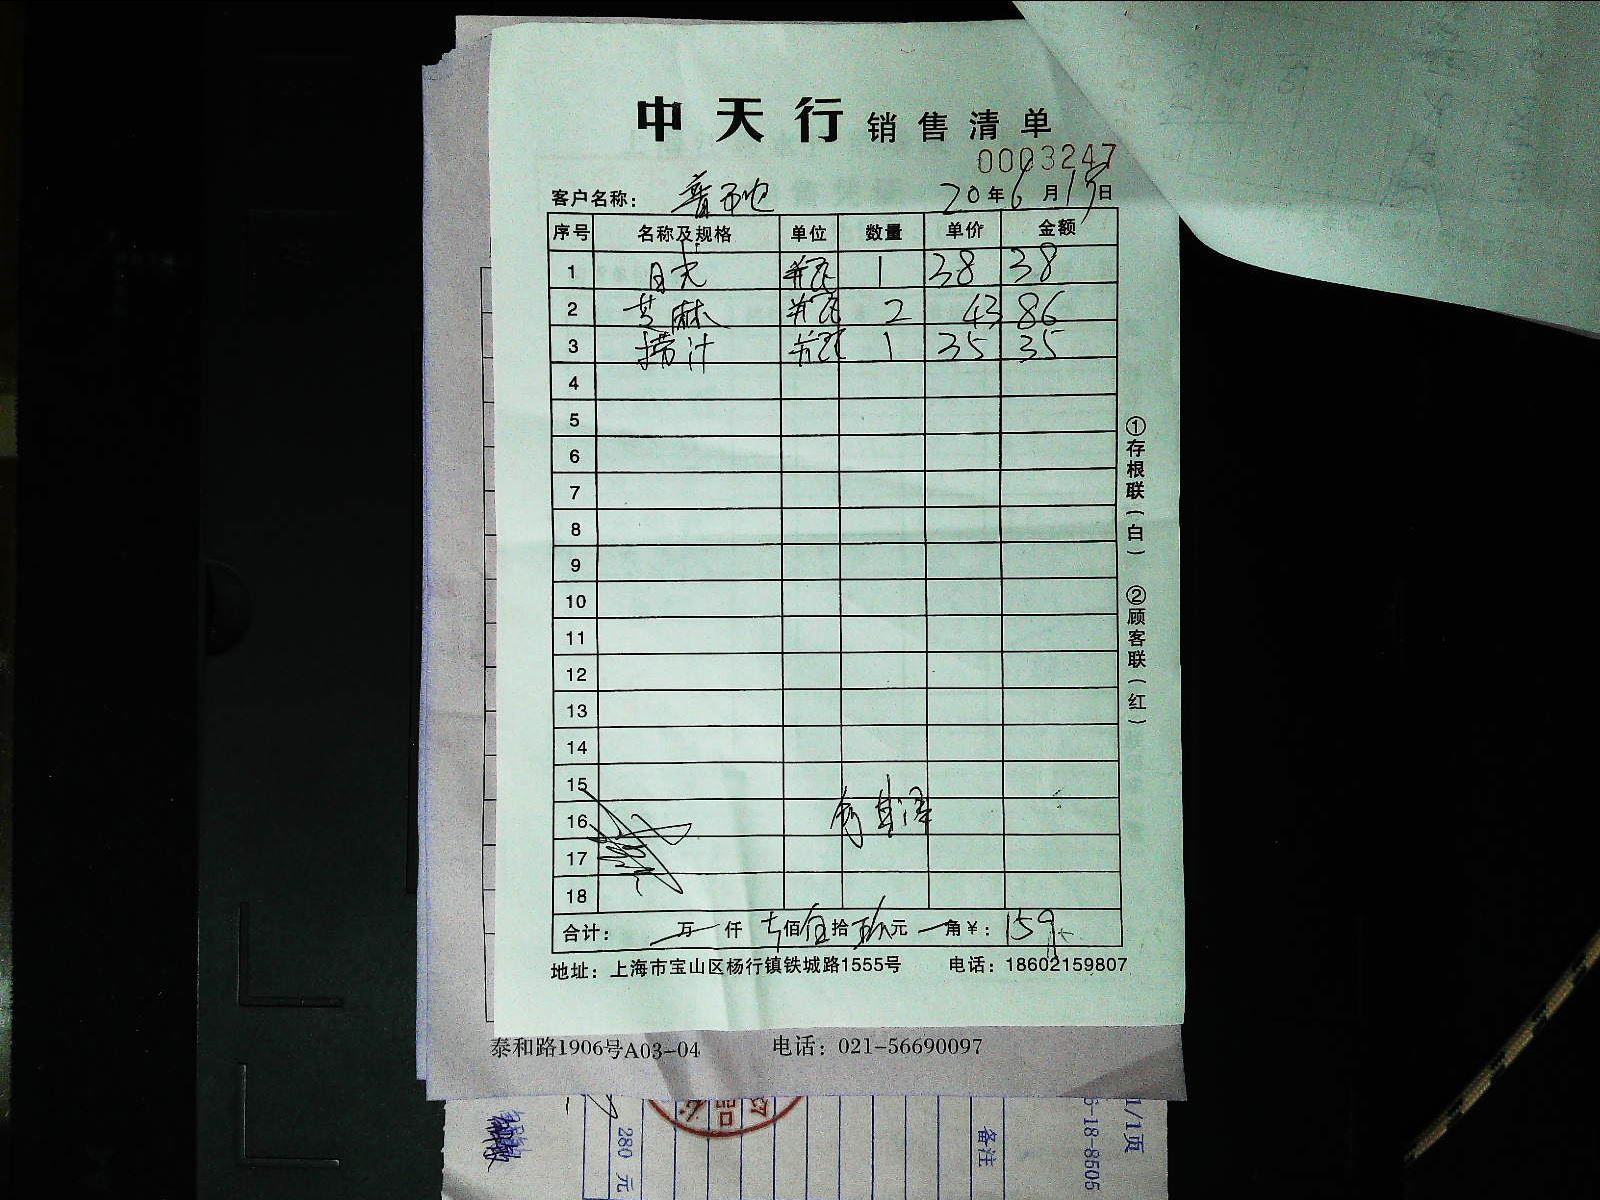 中天行 销售清单
0003247
客户名称: 20年6月15日
序号 名称及规格 单位 数量 单价 金额
1 瓶 1 38 38
2 芝麻 瓶 2 43 86
3 捞汁 瓶 1 35 35
4
5
6
7
8
9
10
11
12
13
14
15
16
17
18
合计: 万 仟 佰 伍拾 玖元 角¥: 159
地址: 上海市宝山区杨行镇铁城路1555号 电话: 18602159807
①存根联(白) ②顾客联(红)
泰和路1906号A03-04 电话: 021-56690097
280 元
备注
-18-8505
1/1页